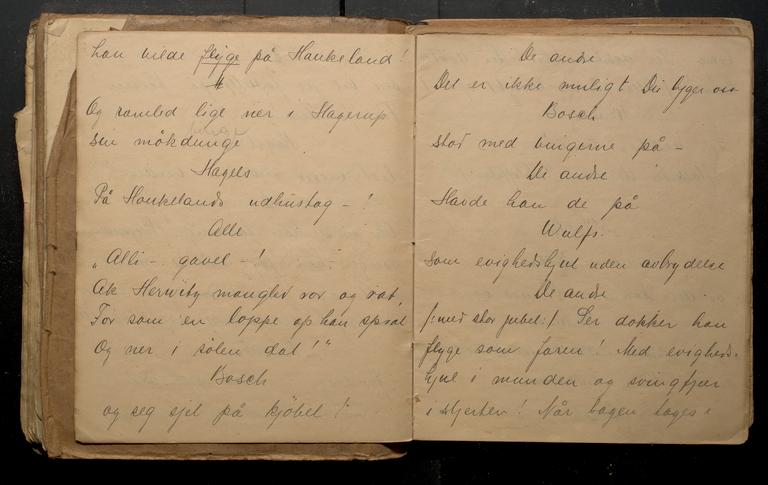 han vilde flyge på Haukeland!
Og ramled lige ner i Hagerup
sin mökdunge
Hagels
På Haukelands udhustag - !
Alle
"Alli - gavel - !
Ak Herwitz mangler ror og rat,
For som en loppe op han sprat
Og ner i sölen dat!"
Bosch
og seg sjel på kjöbet!
De andre
Det er ikke muligt Du lyger oss
Bosch
stod med vingerne på -
De andre
Havde han de på
Wulfs
som evighedshjul uden avbrydelse
De andre
/: med stor jubel :/ Ser dokker han
flyge som faren! Med evigheds-
hjul i munden og svingfjær
i stjerten! Når bogen tages